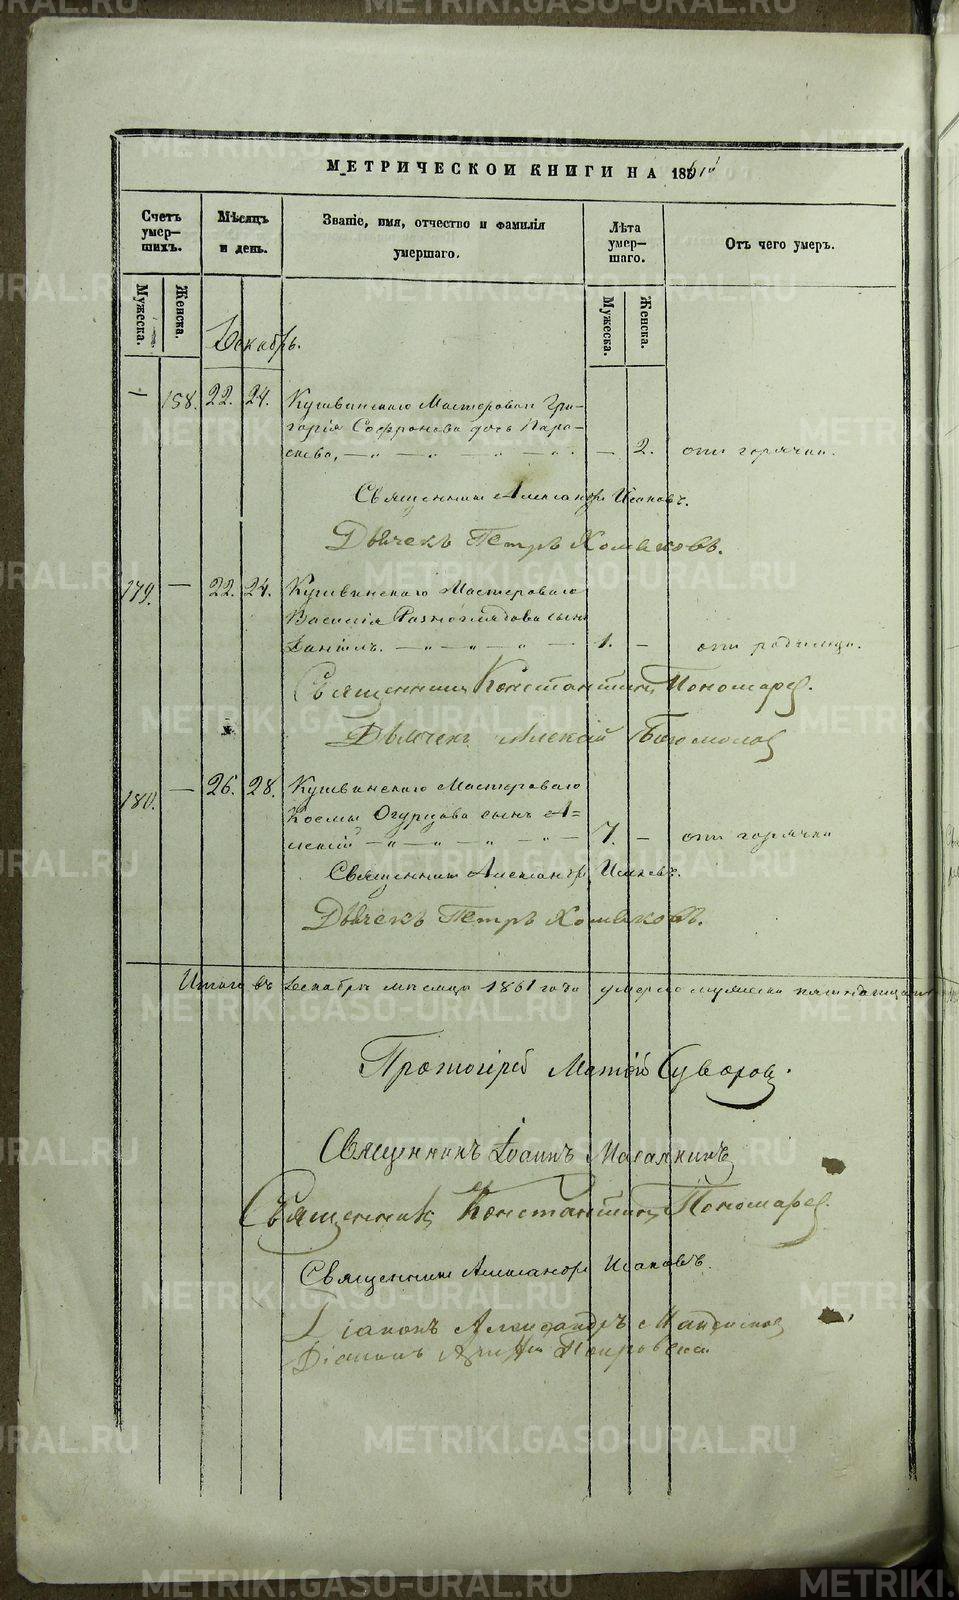 МЕТРИЧЕСКОЙ КНИГИ НА 1861й
Счетъ умер-
шихъ.
Мѣсяцъ
и день.
Званіе, имя, отчество и фамилія
умершаго.
Лѣта
умер-
шаго.
Отъ чего умеръ.
Мужеска.
Женска.
Мужеска.
Женска.
Декабрь.
— 158. 22. 24. Кушвинскаго Мастероваго Гри-
горія Софронова дочь Пара-
скева, — 2. отъ горячки.
Священникъ Александръ Исаковъ.
Дьячекъ Петръ Хомяковъ.
179. — 22. 24. Кушвинскаго Мастероваго
Василія Разноглядова сынъ
Даніилъ. 1. — отъ родимца.
Священникъ Константинъ Пономарев.
Дьячекъ Алексій Богомолов
180. — 26. 28. Кушвинскаго Мастероваго
Космы Огурцова сынъ А-
лексій 7. — отъ горячки
Священникъ Александръ Исаковъ.
Дьячекъ Петръ Хомяковъ.
Итого въ Декабрѣ мѣсяцѣ 1861 года умерло мужеска пятнадцать
Протоіерей Матѳій Суворов.
Священникъ Іоаннъ
Священникъ Константинъ Пономарев.
Священникъ Александръ Исаковъ.
Діаконъ Александръ
Діаконъ
METRIKI.GASO-URAL.RU